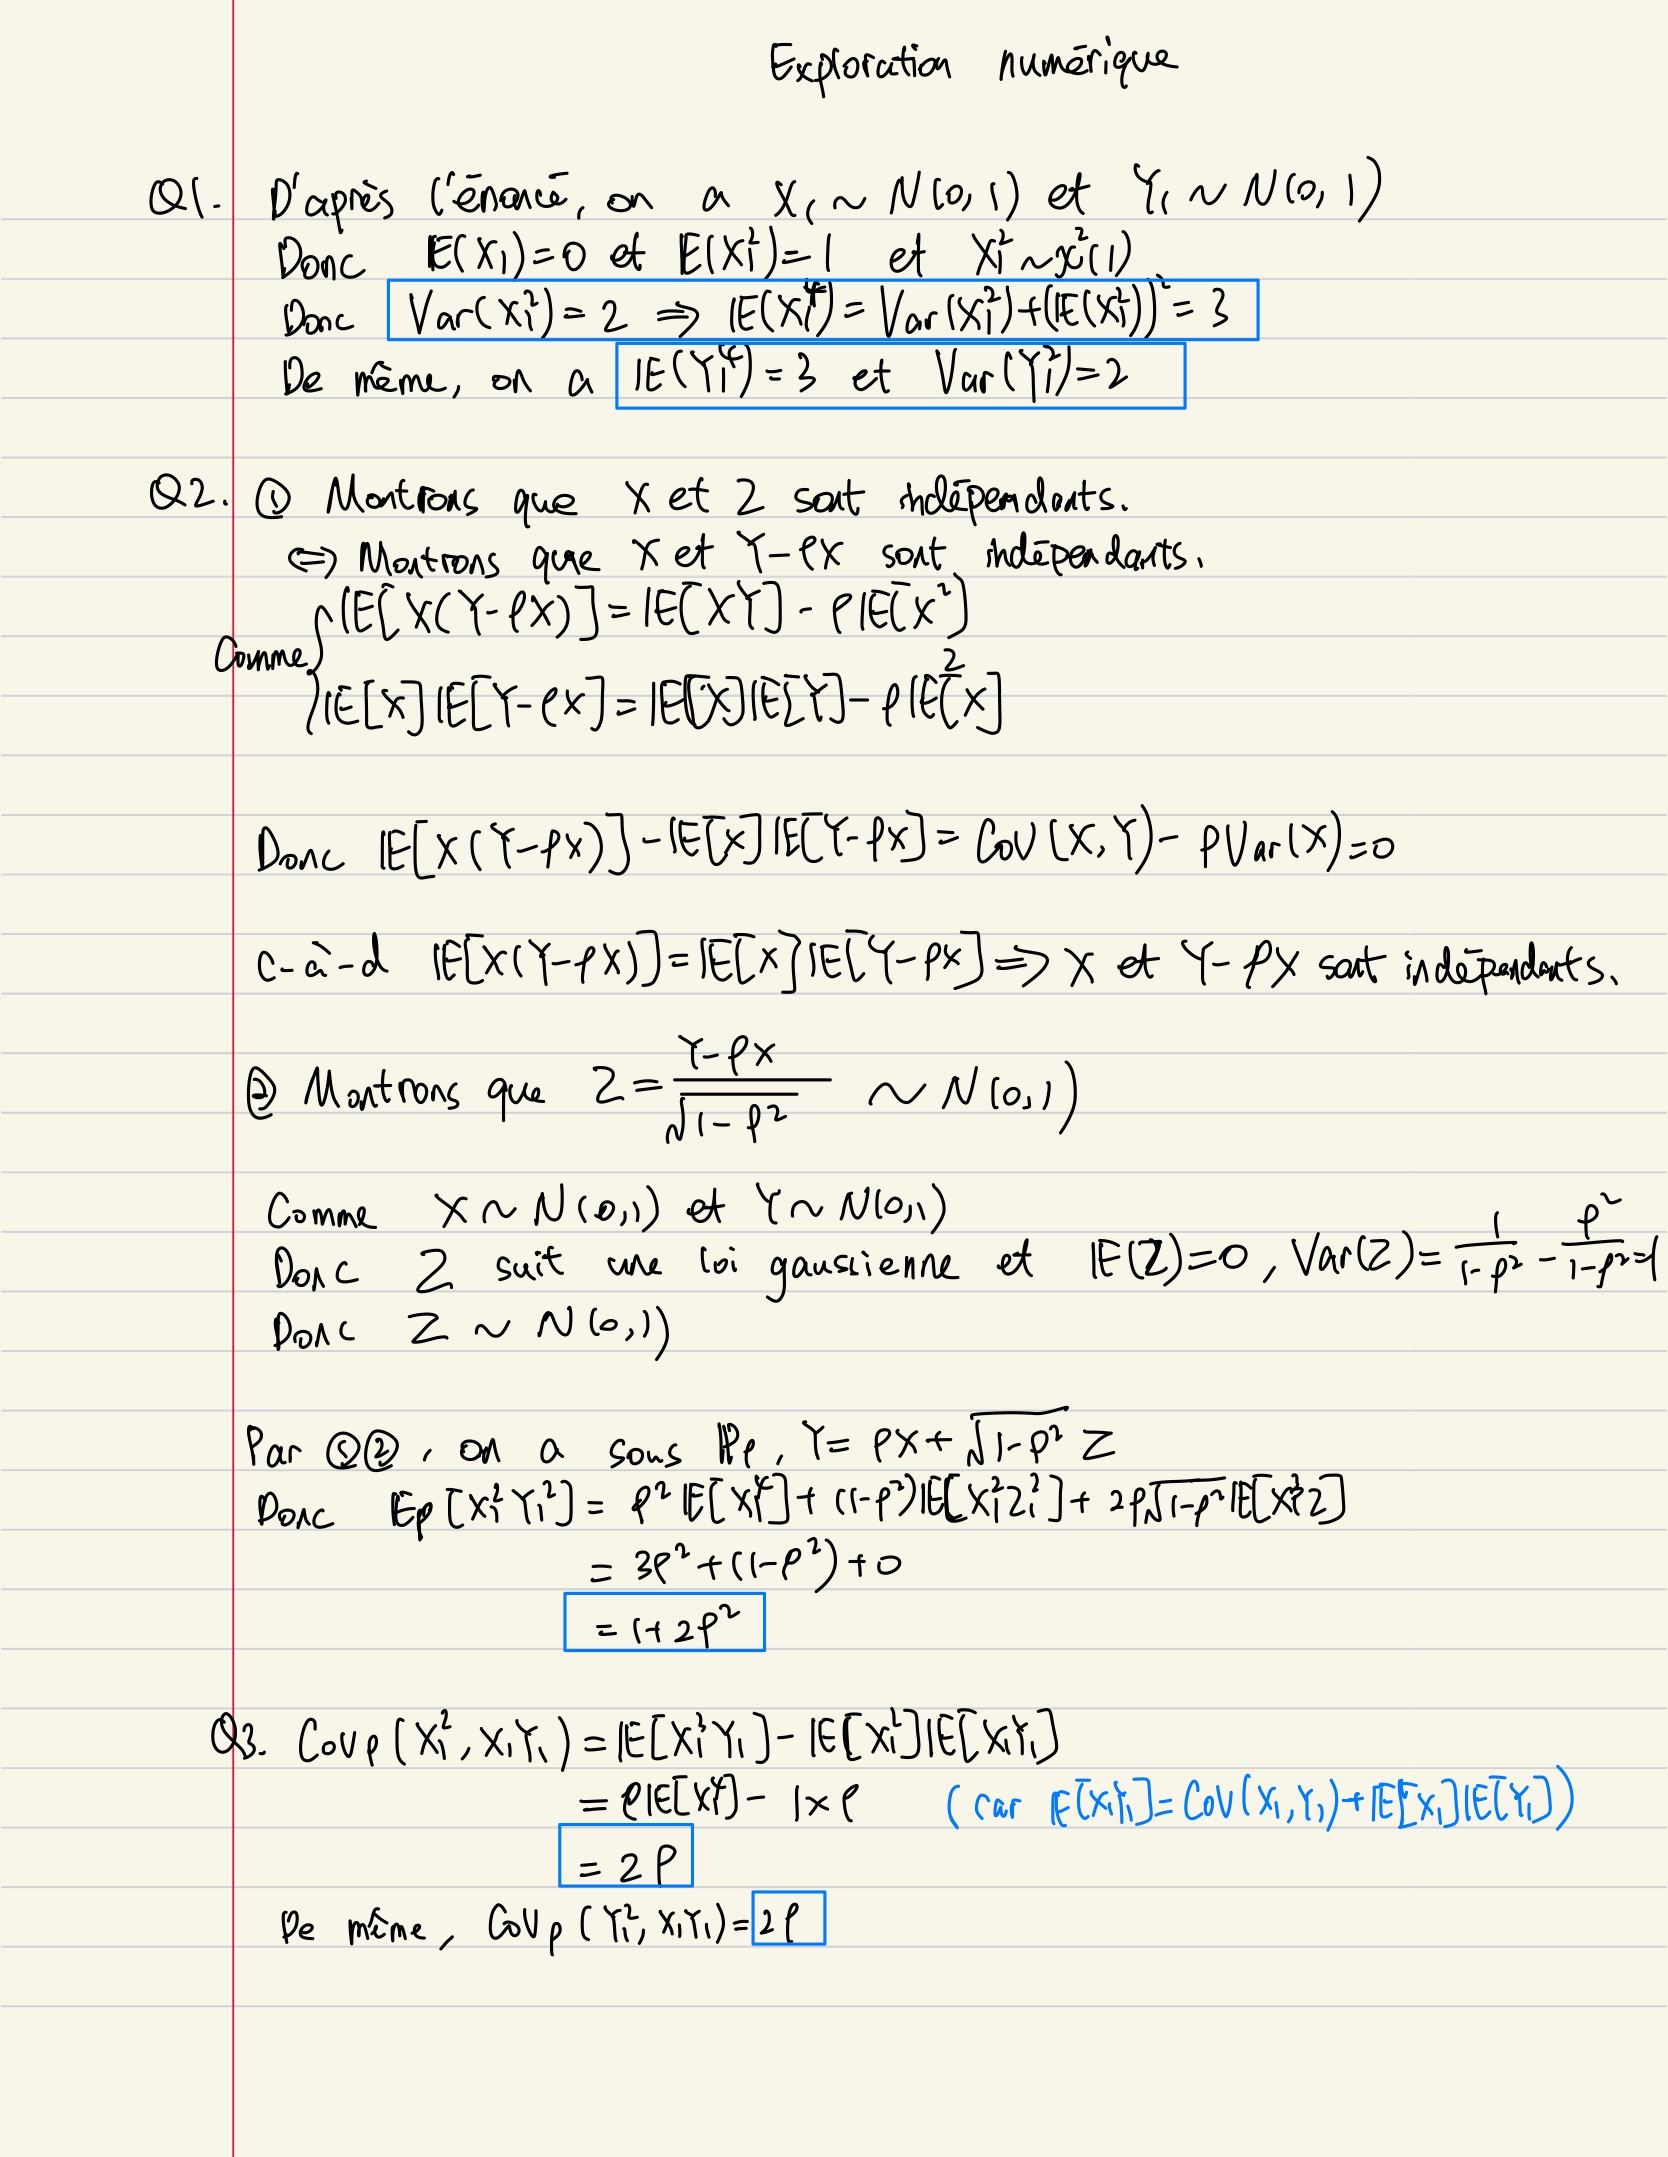 Exploration numérique
Q1. D'après l'énoncé, on a X₁ ~ N(0, 1) et Y₁ ~ N(0, 1)
Donc 𝔼(X₁)=0 et 𝔼(X₁²)=1 et X₁² ~ χ²(1)
Donc Var(X₁²) = 2 ⇒ 𝔼(X₁⁴) = Var(X₁²)+(𝔼(X₁²))² = 3
De même, on a 𝔼(Y₁⁴) = 3 et Var(Y₁²)=2
Q2. ① Montrons que X et Z sont indépendants.
⇔ Montrons que X et Y-ρX sont indépendants.
Comme { 𝔼[X(Y-ρX)] = 𝔼[XY] - ρ𝔼[X²]
𝔼[X]𝔼[Y-ρX] = 𝔼[X]𝔼[Y] - ρ𝔼²[X]
Donc 𝔼[X(Y-ρX)] - 𝔼[X]𝔼[Y-ρX] = Cov(X,Y) - ρVar(X)=0
c-à-d 𝔼[X(Y-ρX)]=𝔼[X]𝔼[Y-ρX] ⇒ X et Y-ρX sont indépendants.
② Montrons que Z = (Y-ρX)/√(1-ρ²) ~ N(0,1)
Comme X ~ N(0,1) et Y ~ N(0,1)
Donc Z suit une loi gaussienne et 𝔼(Z)=0, Var(Z) = 1/(1-ρ²) - ρ²/(1-ρ²) = 1
Donc Z ~ N(0,1)
Par ①②, on a sous ℙρ, Y = ρX + √(1-ρ²) Z
Donc 𝔼ρ[X₁²Y₁²] = ρ²𝔼[X₁⁴] + (1-ρ²)𝔼[X₁²Z₁²] + 2ρ√(1-ρ²)𝔼[X₁³Z]
= 3ρ² + (1-ρ²) + 0
= 1+2ρ²
Q3. Covρ(X₁², X₁Y₁) = 𝔼[X₁³Y₁] - 𝔼[X₁²]𝔼[X₁Y₁]
= ρ𝔼[X₁⁴] - 1×ρ (car 𝔼[X₁Y₁]=Cov(X₁,Y₁)+𝔼[X₁]𝔼[Y₁])
= 2ρ
De même, Covρ(Y₁², X₁Y₁) = 2ρ